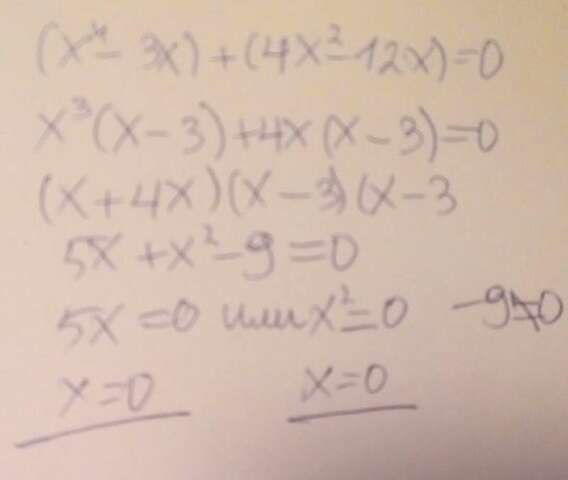 (x⁴ - 3x) + (4x² - 12x) = 0
x³(x - 3) + 4x(x - 3) = 0
(x + 4x)(x - 3)(x - 3
5x + x² - 9 = 0
5x = 0 или x² = 0 -9 ≠ 0
x = 0 x = 0